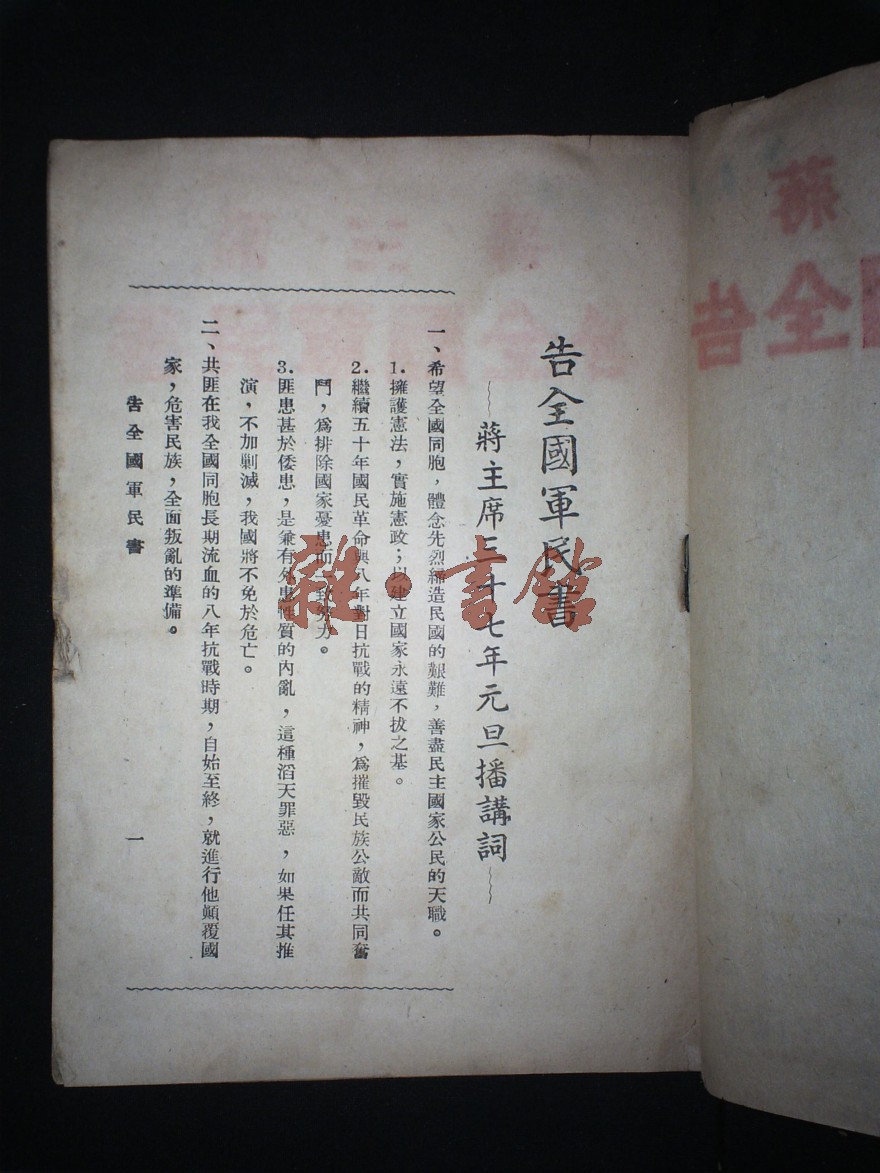 告全國軍民書
蔣主席三十七年元旦播講詞
一、希望全國同胞，體念先烈締造民國的艱難，善盡民主國家公民的天職。
1.擁護憲法，實施憲政；以建立國家永遠不拔之基。
2.繼續五十年國民革命與八年對日抗戰的精神，爲摧毀民族公敵而共同奮
鬥，爲排除國家憂患而一致努力。
3.匪患甚於倭患，是兼有外患性質的內亂，這種滔天罪惡，如果任其推
演，不加剿滅，我國將不免於危亡。
二、共匪在我全國同胞長期流血的八年抗戰時期，自始至終，就進行他顚覆國
家，危害民族，全面叛亂的準備。
告全國軍民書
一
雜·書館
蔣
全告